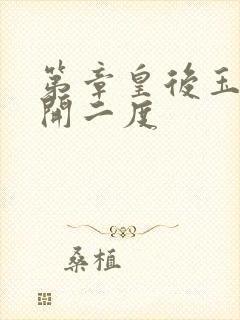 第章皇後玉
開二度
桑植